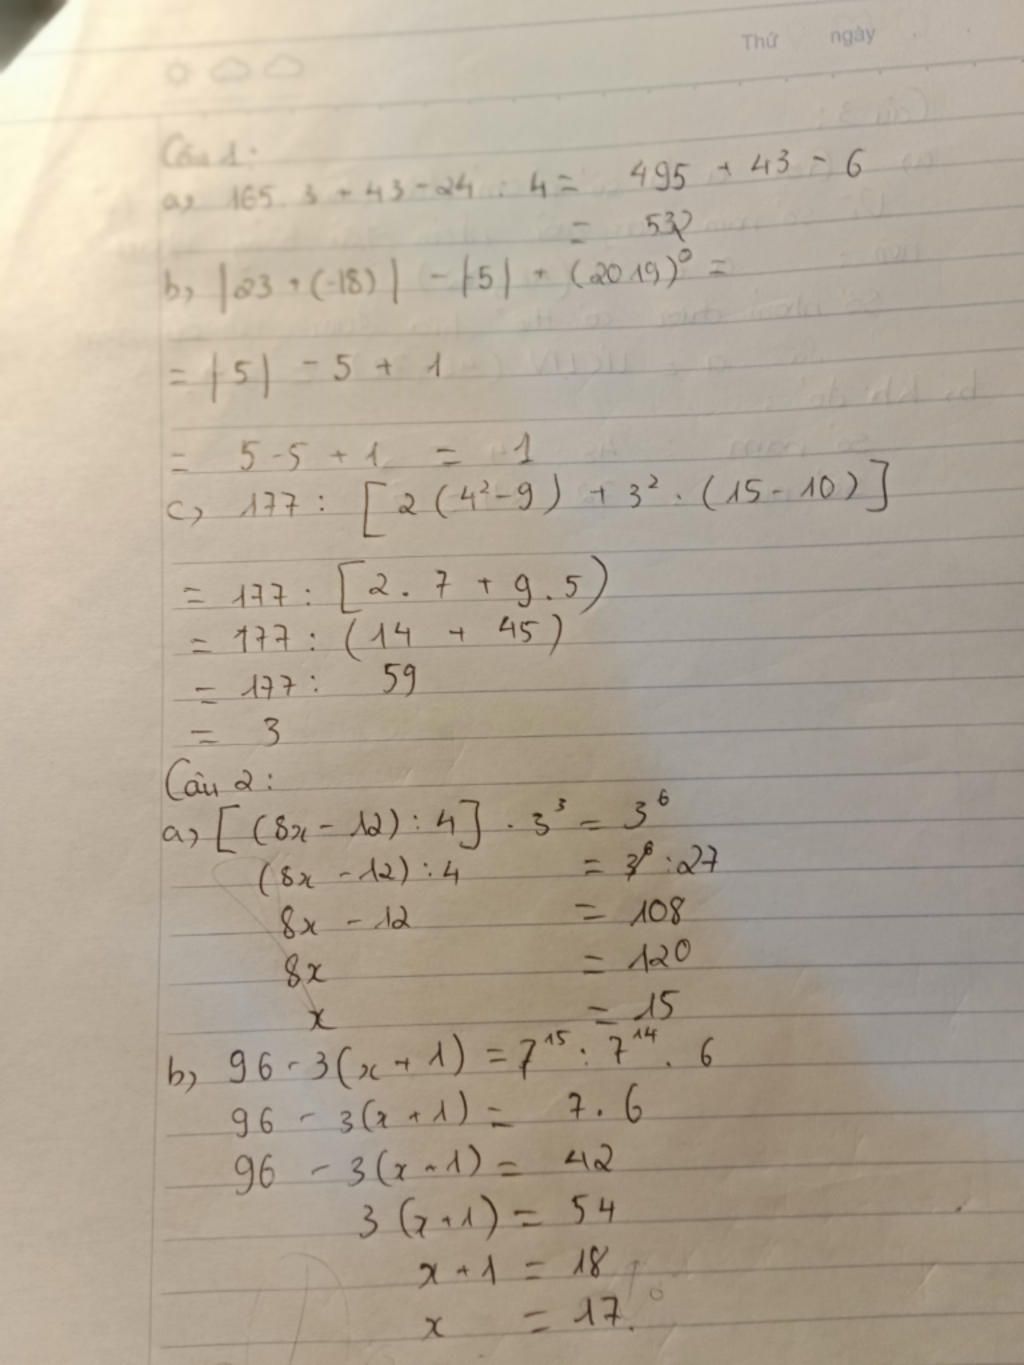 Thứ ngày
Câu 1:
a, 165 . 3 + 43 - 24 : 4 = 495 + 43 - 6
= 532
b, |23 + (-18)| - |-5| + (2019)⁰ =
= |5| - 5 + 1
= 5 - 5 + 1 = 1
c, 177 : [2(4² - 9) + 3² . (15 - 10)]
= 177 : [2 . 7 + 9 . 5)
= 177 : (14 + 45)
= 177 : 59
= 3
Câu 2:
a, [(8x - 12) : 4] . 3³ = 3⁶
(8x - 12) : 4 = 3⁶ : 27
8x - 12 = 108
8x = 120
x = 15
b, 96 - 3(x + 1) = 7¹⁵ : 7¹⁴ . 6
96 - 3(x + 1) = 7 . 6
96 - 3(x + 1) = 42
3(x + 1) = 54
x + 1 = 18
x = 17.